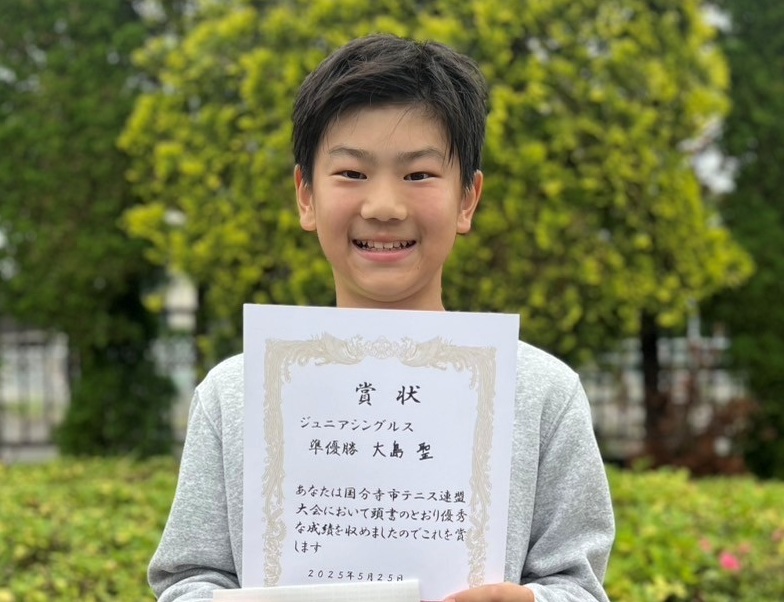 賞状
ジュニアシングルス
準優勝 大島 聖
あなたは国分寺市テニス連盟
大会において頭書のとおり優秀
な成績を収めましたのでこれを賞
します
2025年5月25日